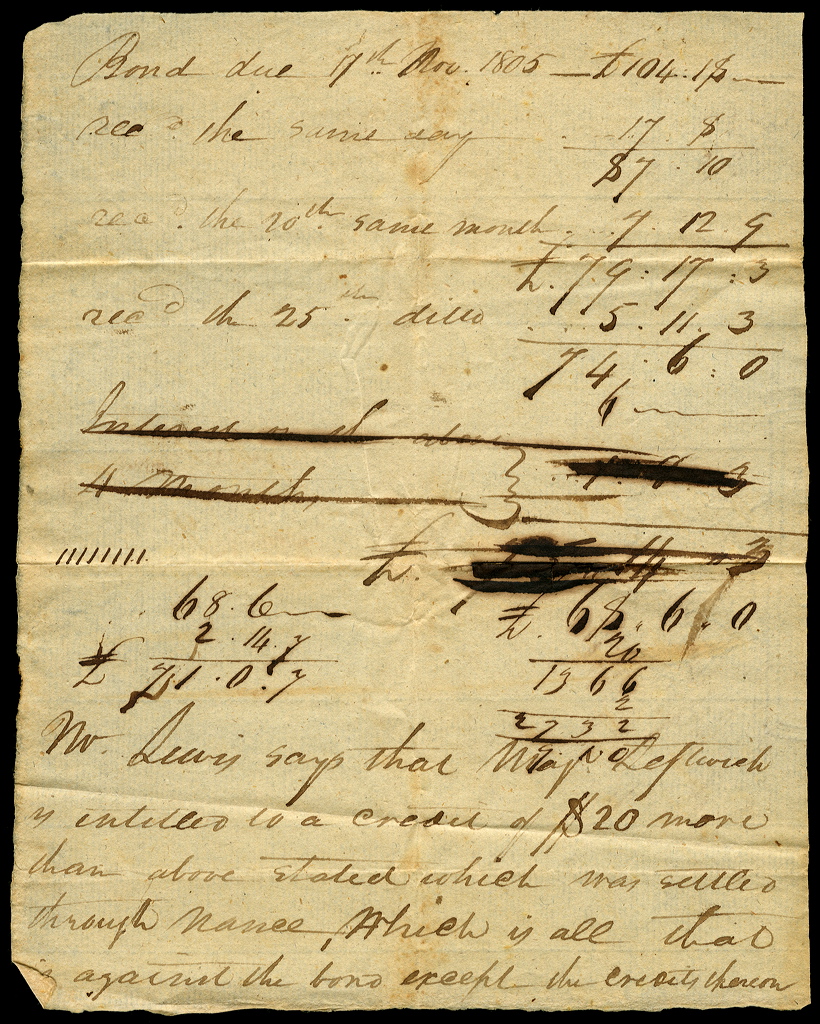 Bond due 17th Nov. 1805 — £104:18 —
recd the same day . . 17 8
87 . 10
recd. the 20th same month . . 7 . 12 . 9
£. 79 : 17 : 3
recd the 25th ditto . . 5 . 11 . 3
74 : 6 : 0
6 —
Interest on the above
4 Months,
£.
68 . 6 — £. 68 . 6 . 0
2 . 14 . 7 20
£ 71 . 0 . 7 1366
2
2732
Mr. Lewis says that Majr Leftwich
is entitled to a credit of $20 more
than above stated which was settled
through Nance, Which is all that
is against the bond except the credits thereon